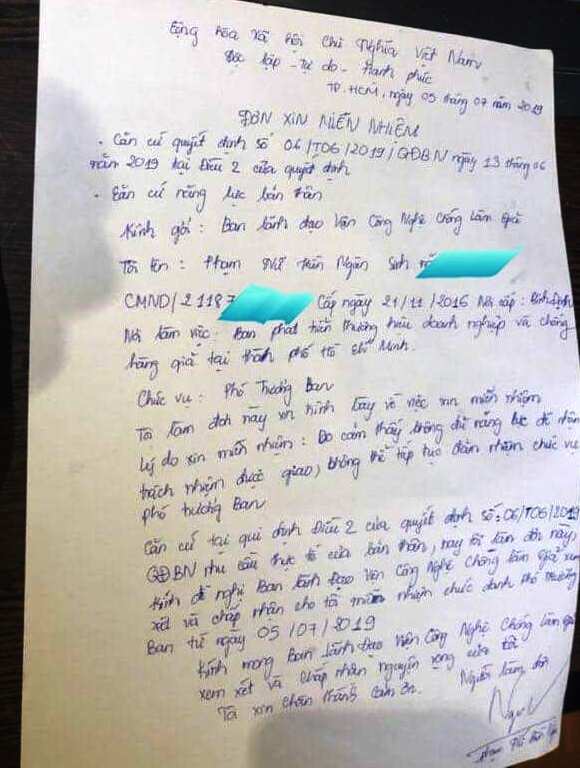 Cộng hòa Xã hội Chủ Nghĩa Việt Nam
Độc lập - Tự do - Hạnh phúc
TP.HCM, ngày 05 tháng 07 năm 2019
ĐƠN XIN MIỄN NHIỆM
- Căn cứ quyết định số 06/T06/2019/QĐBN ngày 13 tháng 06
năm 2019 tại Điều 2 của quyết định
- Căn cứ năng lực bản thân
Kính gởi: Ban lãnh đạo Viện Công Nghệ Chống Làm Giả
Tôi tên: Phạm Nữ Ngân Sinh
CMND/21187 Cấp ngày 21/11/2016 Nơi cấp: Bình Định
Nơi làm việc: Ban phát triển thương hiệu doanh nghiệp và chống
hàng giả tại thành phố Hồ Chí Minh.
Chức vụ: Phó Trưởng Ban
Tôi làm đơn này xin trình bày về việc xin miễn nhiệm
Lý do xin miễn nhiệm: Do cảm thấy không đủ năng lực để nhận
trách nhiệm được giao, không thể tiếp tục đảm nhiệm chức vụ
phó trưởng Ban
Căn cứ tại qui định Điều 2 của quyết định số: 06/T06/2019
QĐBN nhu cầu thực tế của bản thân, nay tôi làm đơn này,
Kính đề nghị Ban lãnh Đạo Viện Công Nghệ Chống làm giả xem
xét và chấp nhận cho tôi miễn nhận chức danh phó trưởng
Ban từ ngày 05/07/2019
Kính mong Ban lãnh Đạo Viện Công Nghệ Chống làm giả
xem xét và chấp nhận nguyện vọng của tôi
Tôi xin chân thành cảm ơn. Người làm đơn